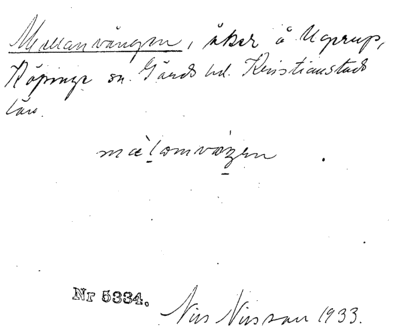 Mellanvången, åker å Ugerup,
Köpinge sn. Gärds hd. Kristianstads
län.
mælomvaŋen .
Nr 5334.
Nils Nilsson 1933.